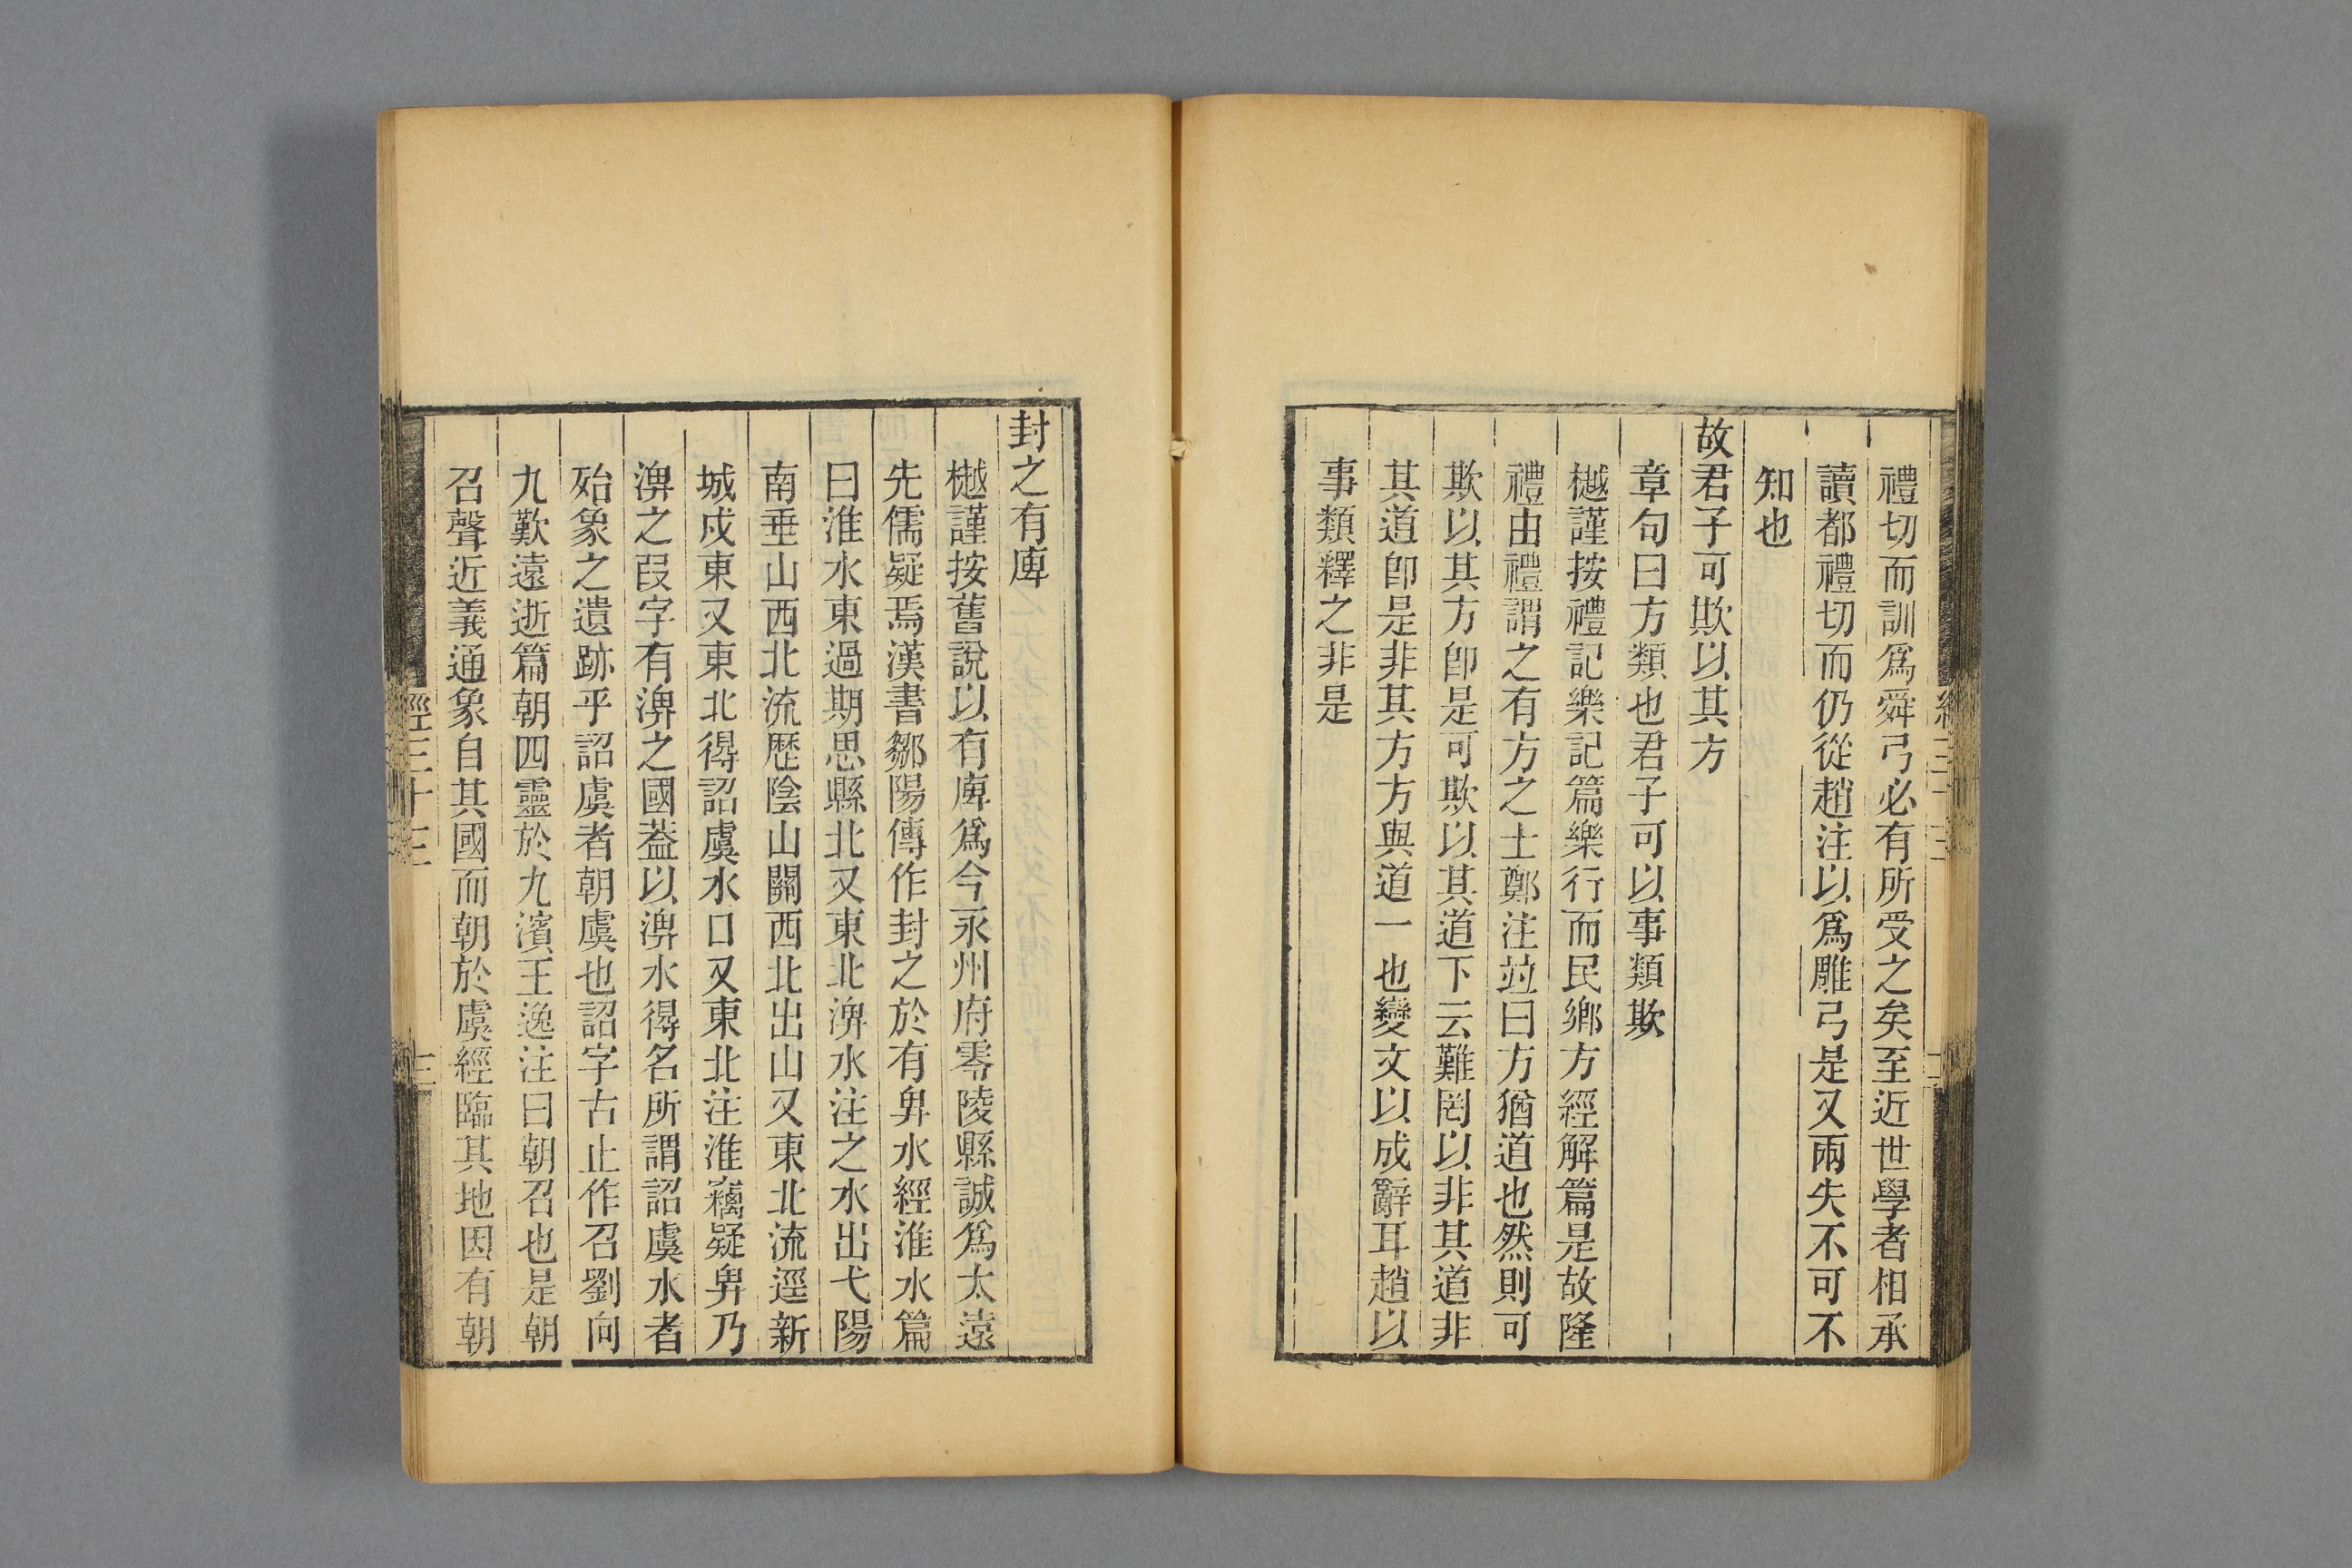 禮切而訓爲舜弓必有所受之矣至近世學者相承
讀都禮切而仍從趙注以爲雕弓是又兩失不可不
知也
故君子可欺以其方
章句曰方類也君子可以事類欺
樾謹按禮記樂記篇樂行而民鄉方經解篇是故隆
禮由禮謂之有方之士鄭注竝曰方猶道也然則可
欺以其方卽是可欺以其道下云難罔以非其道非
其道卽是非其方方與道一也變文以成辭耳趙以
事類釋之非是
封之有庳
樾謹按舊說以有庳爲今永州府零陵縣誠爲太遠
先儒疑焉漢書鄒陽傳作封之於有畀水經淮水篇
曰淮水東過期思縣北又東北淠水注之水出弋陽
南垂山西北流歷陰山關西北出山又東北流逕新
城戍東又東北得詔虞水口又東北注淮竊疑畀乃
淠之叚字有淠之國葢以淠水得名所謂詔虞水者
殆象之遺跡乎詔虞者朝虞也詔字古止作召劉向
九歎遠逝篇朝四靈於九濱王逸注曰朝召也是朝
召聲近義通象自其國而朝於虞經臨其地因有朝
經三十三
三